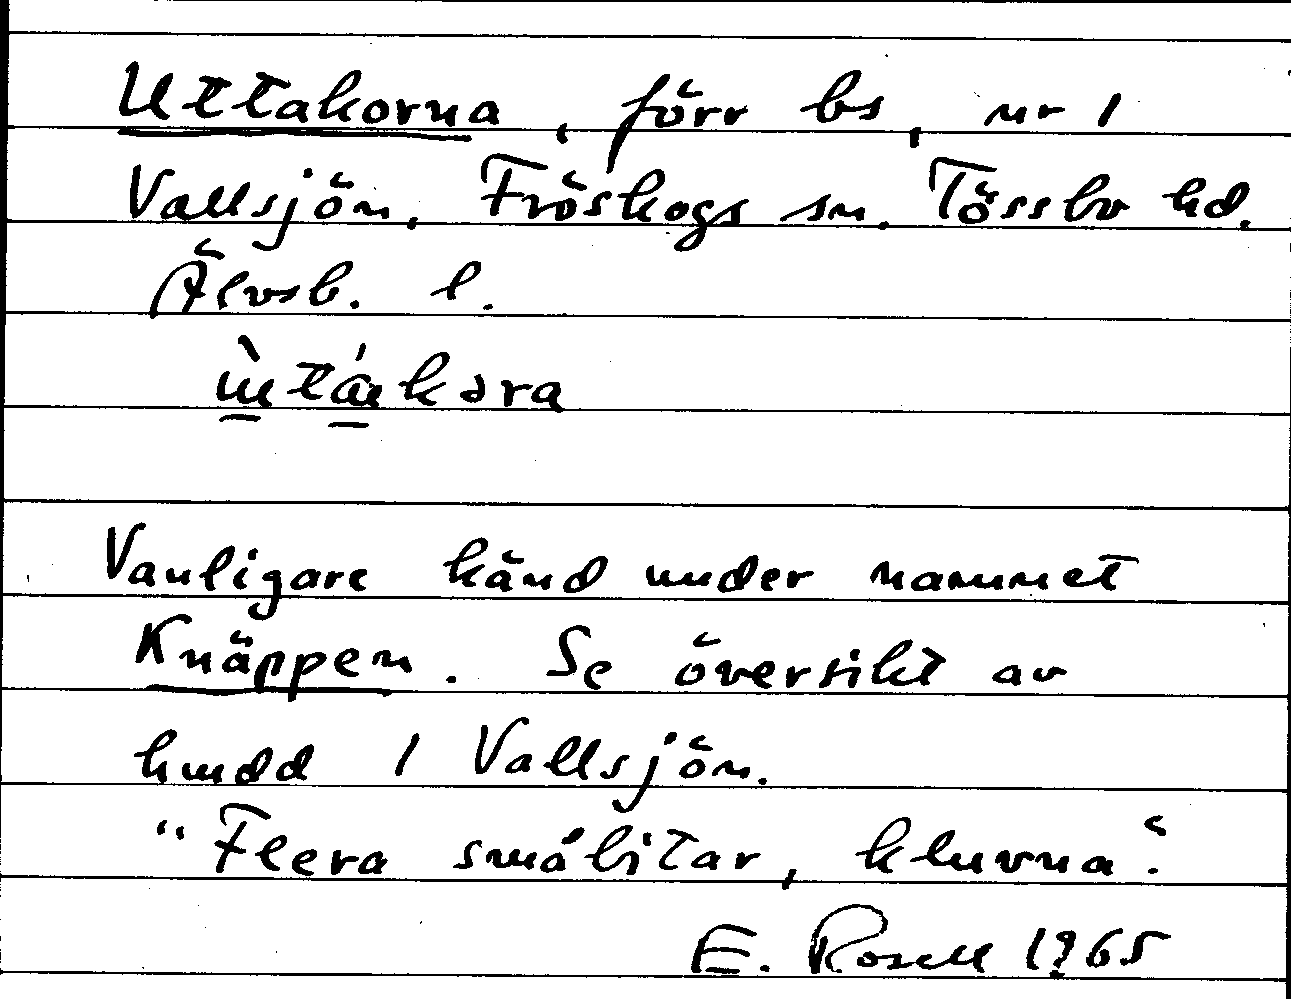 Uttakorna, förr bs, nr 1
Vallsjön, Fröskogs sn. Tössbo hd.
Älvsb. l.
Vanligare känd under namnet
Knäppen. Se översikt av
hmdd 1 Vallsjön.
"Flera småbitar, kluvna".
E. Rosell 1965